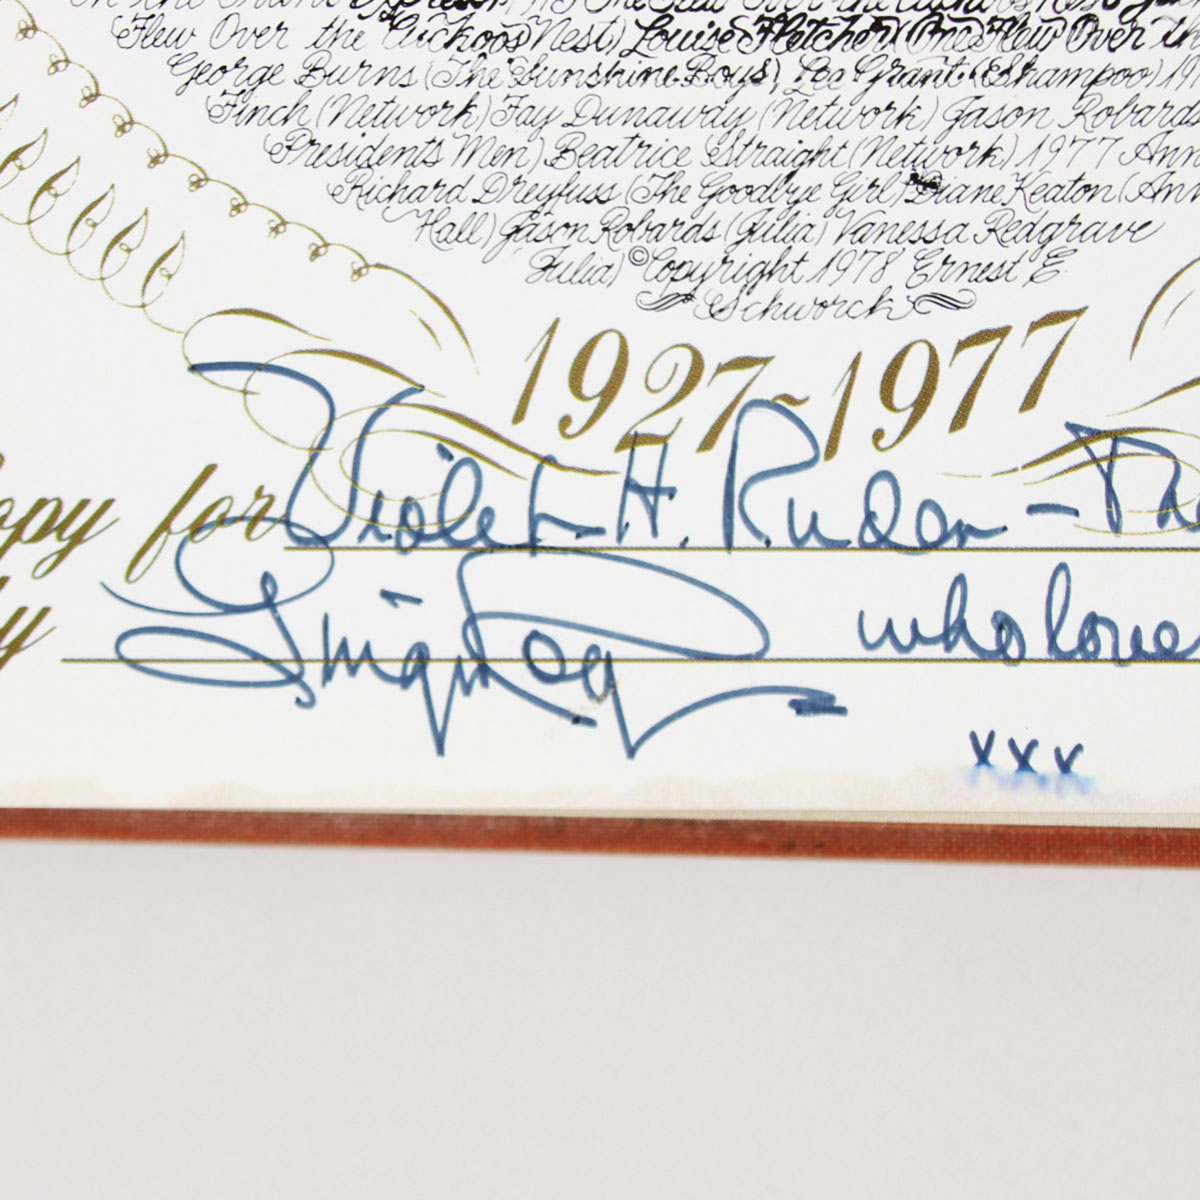 Flew Over the Cuckoos Nest) Louise Fletcher (One Flew Over th
George Burns (The Sunshine Boys) Lee Grant (Shampoo) 19
Finch (Network) Fay Dunaway (Network) Jason Robards
Presidents Men) Beatrice Straight (Network) 1977 Ann
Richard Dreyfuss (The Goodbye Girl) Diane Keaton (Ann
Hall) Jason Robards (Julia) Vanessa Redgrave
Julia) ©Copyright 1978 Ernest E.
Schworck
1927-1977
opy for Violet H. Ruden - The
y who love
xxx